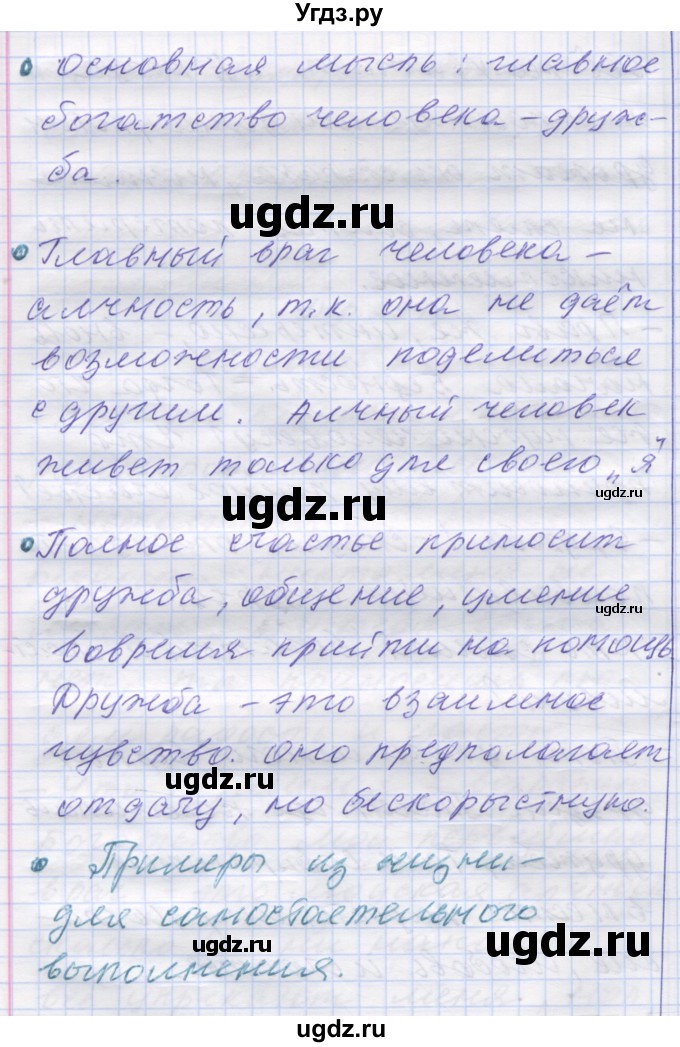 Угдз.ру
основная мысль: главное
богатство человека – друж-
ба.
ugdz.ru
Главный враг человека –
алчность, т.к. она не даёт
возможности поделиться
с другим. Алчный человек
живет только для своего „я"
ugdz.ru
Полное счастье приносит
дружба, общение, умение
вовремя прийти на помощь
Дружба – это взаимное
чувство. оно предполагает
отдачу, но бескорыстную.
Примеры из жизни –
для самостоятельного
ugdz.ru
выполнения.
ugdz.ru